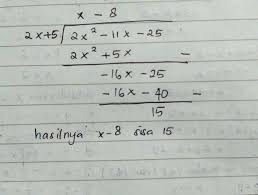 x - 8
2x+5 2x² - 11x - 25
2x² + 5x -
-16x - 25
-16x - 40 -
15
hasilnya x-8 sisa 15